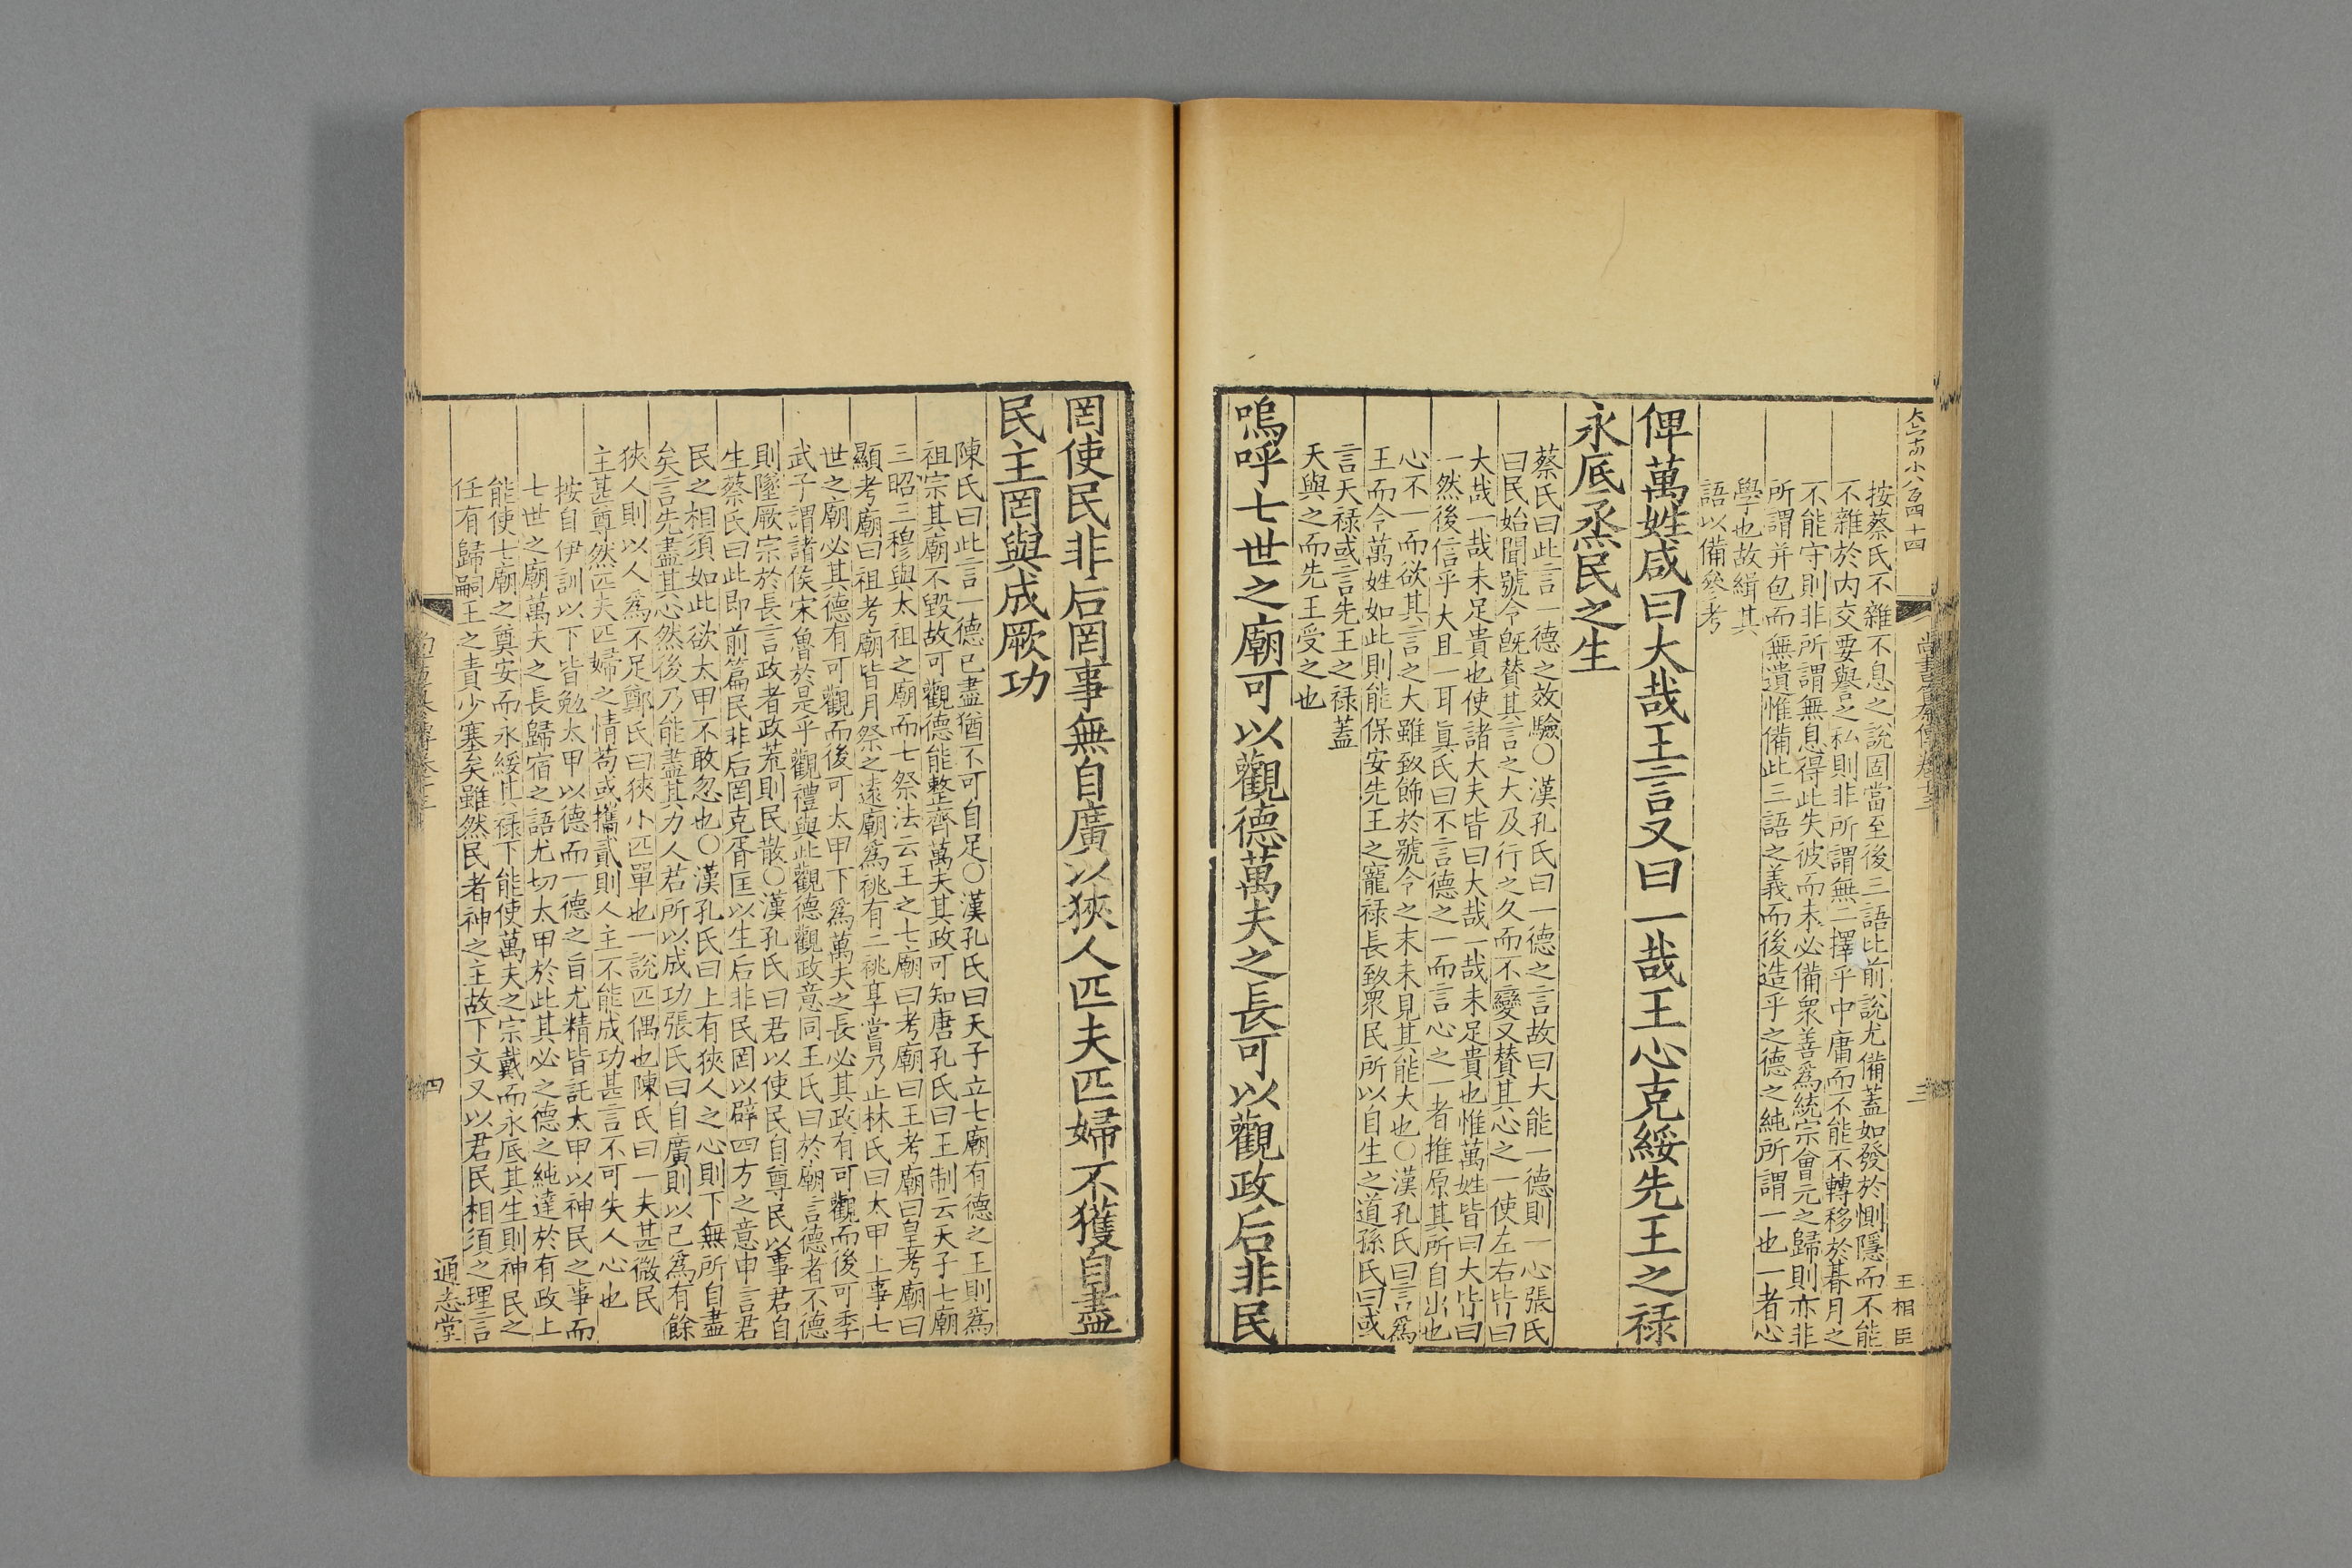 大六十四小八百四十四
尚書纂傳卷十三
三
王相臣
按蔡氏不雜不息之說固當至後三語比前說尤備蓋如發於惻隱而不能
不雜於內交要譽之私則非所謂無二擇乎中庸而不能不轉移於朞月之
不能守則非所謂無息得此失彼而未必備衆善爲統宗會元之歸則亦非
所謂并包而無遺惟備此三語之義而後造乎之德之純所謂一也一者心
學也故緝其
語以備參考
俾萬姓咸曰大哉王言又曰一哉王心克綏先王之祿
永底烝民之生
蔡氏曰此言一德之效驗〇漢孔氏曰一德之言故曰大能一德則一心張氏
曰民始聞號令旣賛其言之大及行之久而不變又賛其心之一使左右皆曰
大哉一哉未足貴也使諸大夫皆曰大哉一哉未足貴也惟萬姓皆曰大皆曰
一然後信乎大且一耳眞氏曰不言德之一而言心之一者推原其所自出也
心不一而欲其言之大雖致飾於號令之末未見其能大也〇漢孔氏曰言爲
王而令萬姓如此則能保安先王之寵祿長致衆民所以自生之道孫氏曰或
言天祿或言先王之祿蓋
天與之而先王受之也
嗚呼七世之廟可以觀德萬夫之長可以觀政后非民
罔使民非后罔事無自廣以狹人匹夫匹婦不獲自盡
民主罔與成厥功
陳氏曰此言一德已盡猶不可自足〇漢孔氏曰天子立七廟有德之王則爲
祖宗其廟不毀故可觀德能整齊萬夫其政可知唐孔氏曰王制云天子七廟
三昭三穆與太祖之廟而七祭法云王之七廟曰考廟曰王考廟曰皇考廟曰
顯考廟曰祖考廟皆月祭之遠廟爲祧有二祧享嘗乃止林氏曰太甲上事七
世之廟必其德有可觀而後可太甲下爲萬夫之長必其政有可觀而後可季
武子謂諸侯宋魯於是乎觀禮與此觀德觀政意同王氏曰於廟言德者不德
則墜厥宗於長言政者政荒則民散〇漢孔氏曰君以使民自尊民以事君自
生蔡氏曰此即前篇民非后罔克胥匡以生后非民罔以辟四方之意申言君
民之相須如此欲太甲不敢忽也〇漢孔氏曰上有狹人之心則下無所自盡
矣言先盡其心然後乃能盡其力人君所以成功張氏曰自廣則以己爲有餘
狹人則以人爲不足鄭氏曰狹小匹單也一說匹偶也陳氏曰一夫甚微民
主甚尊然匹夫匹婦之情苟或攜貳則人主不能成功甚言不可失人心也
按自伊訓以下皆勉太甲以德而一德之旨尤精皆託太甲以神民之事而
七世之廟萬夫之長歸宿之語尤切太甲於此其必之德之純達於有政上
能使七廟之奠安而永綏其祿下能使萬夫之宗戴而永底其生則神民之
任有歸嗣王之責少塞矣雖然民者神之主故下文又以君民相須之理言
四
通志堂